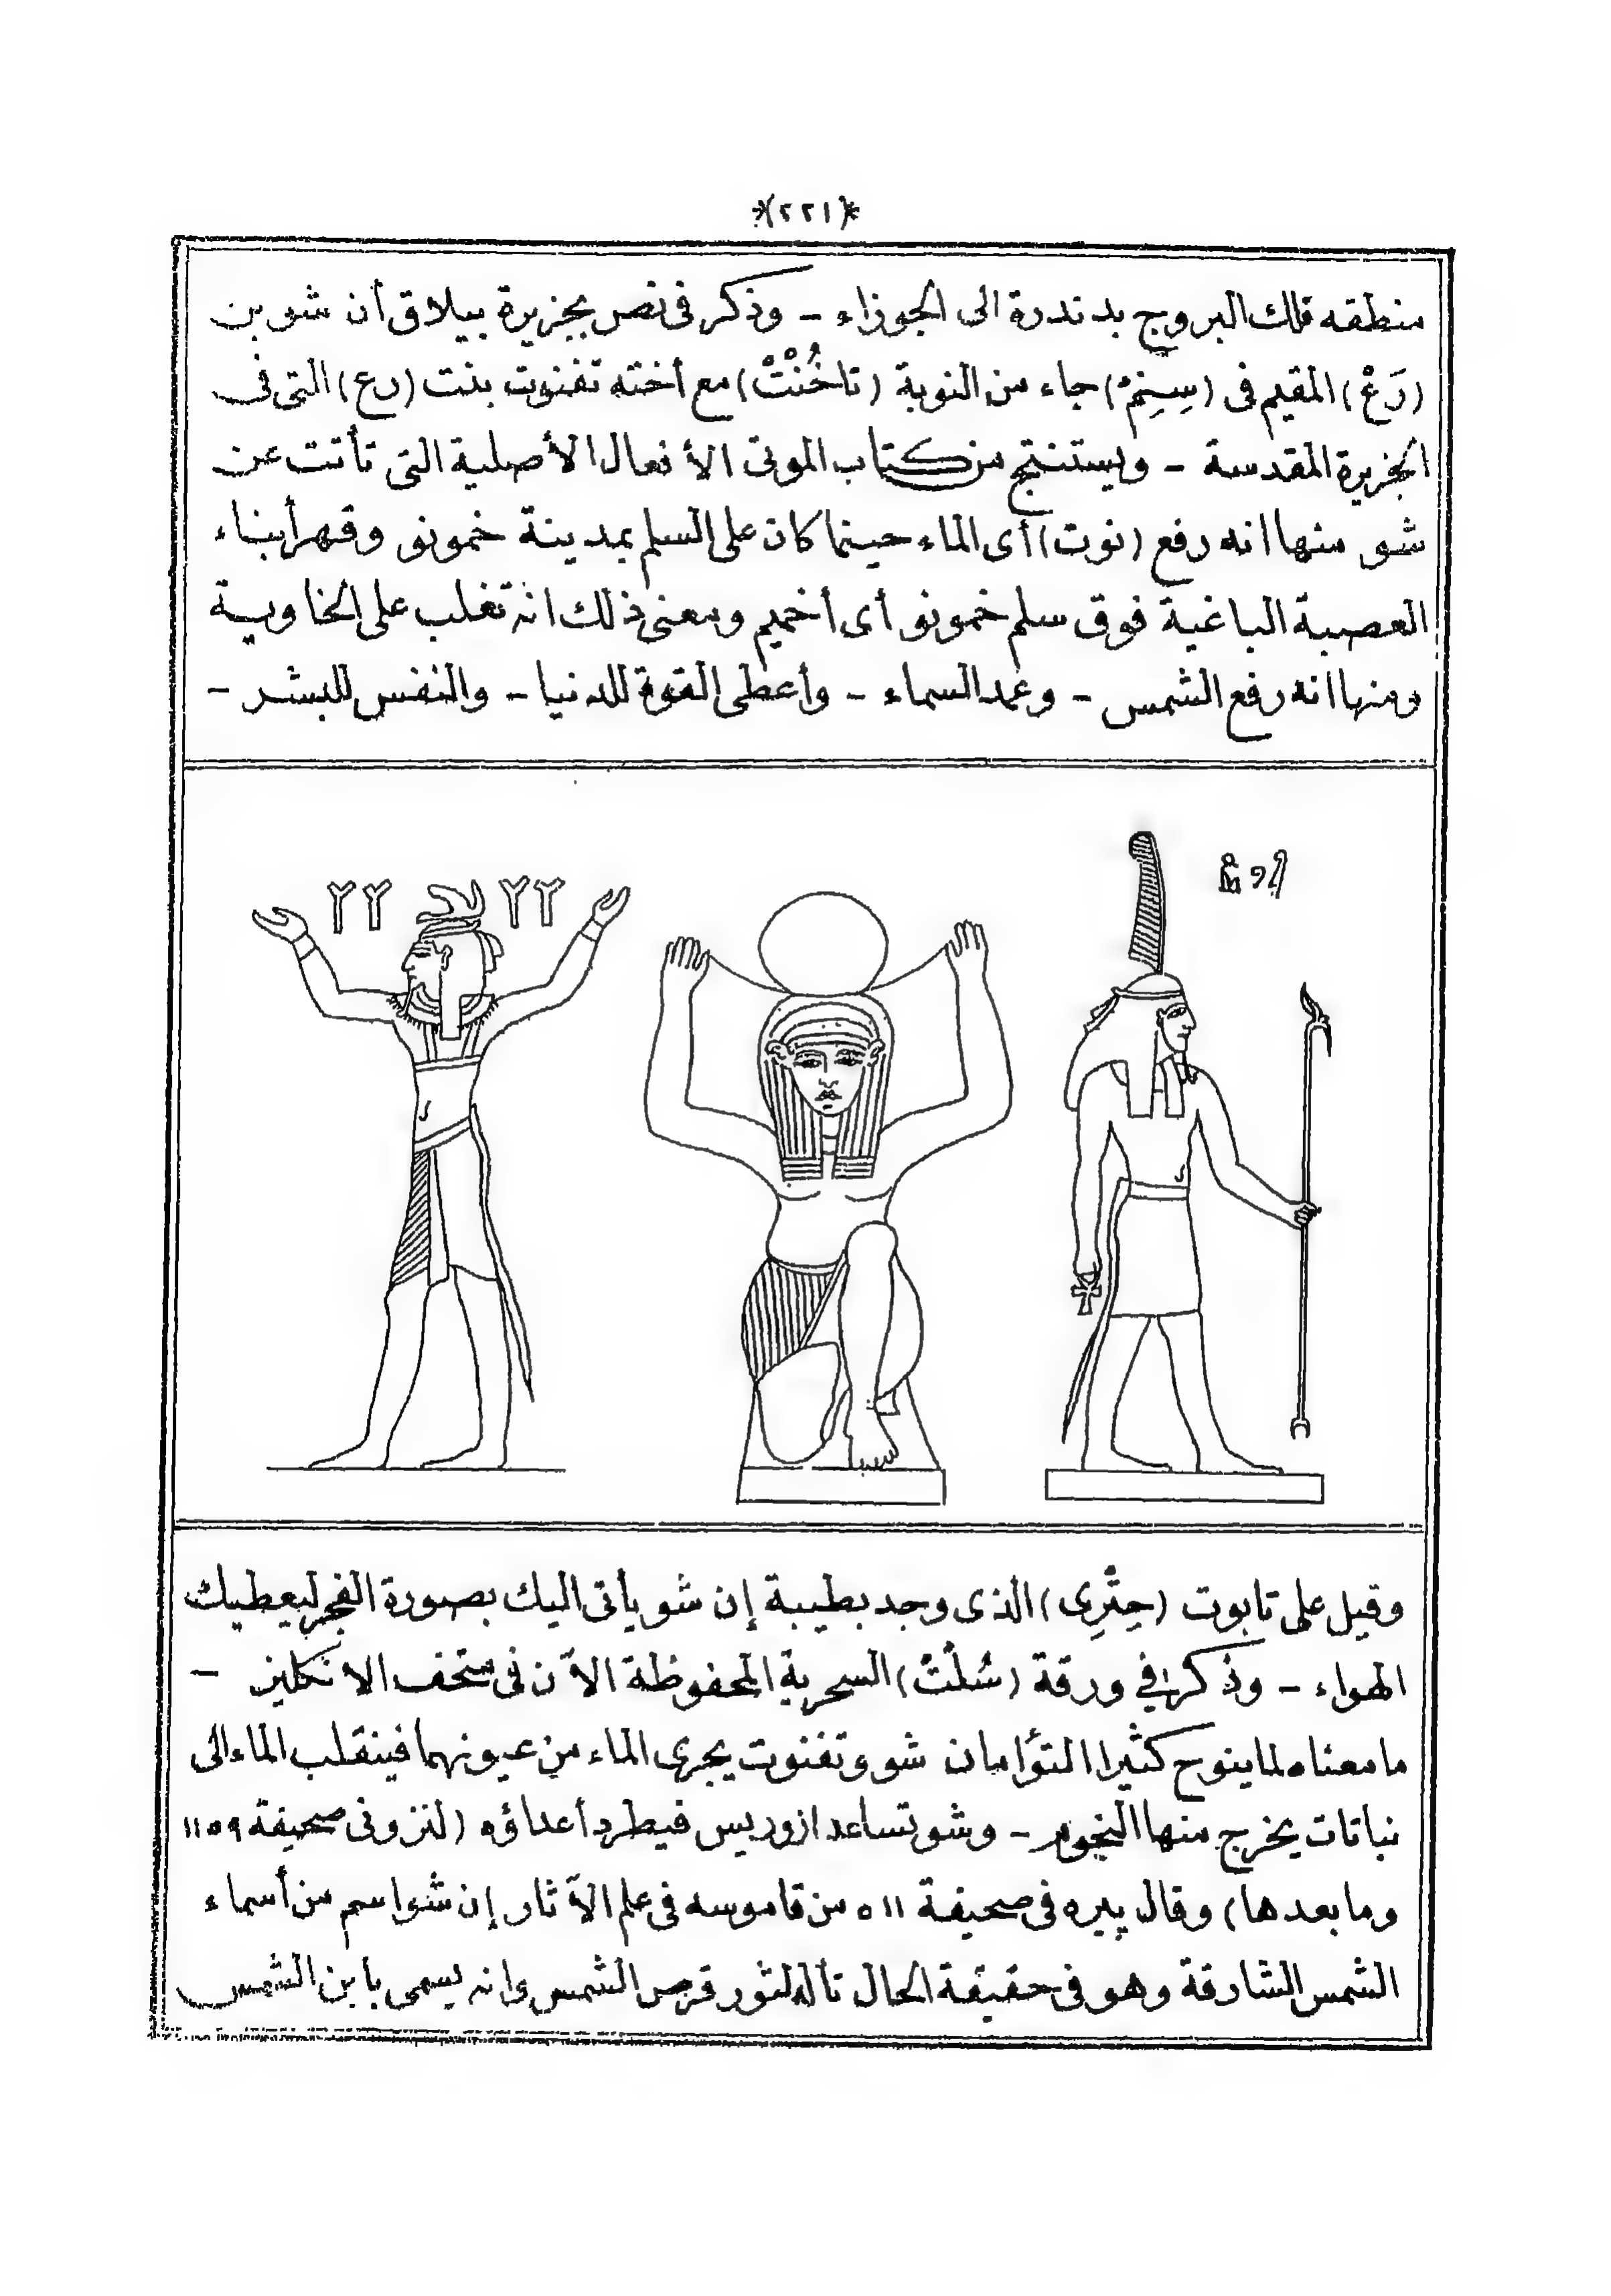 *(٢٢١)*
منطقه فلك البروج بدندرة الى الجوزاء - وذكر فى نص بجزيرة بيلاق أن شو بن
(رَعْ) المقيم فى (سِنِمْ) جاء من النوبة (تاخُنْتْ) مع أخته تفنوت بنت (رع) التى فى
الجزيرة المقدسة - ويستنتج من كتاب الموتى الأفعال الأصلية التى تأتت عن
شو منها انه رفع (نوت) أى الماء حينما كان على السلم بمدينة خمونو وقهر أبناء
العصبة الباغية فوق سلم خمونو أى أخميم ومعنى ذلك انه تغلب على الخاوية
ومنها انه رفع الشمس - وعمد السماء - وأعطى القوة للدنيا - والنفس للبشر -
وقيل على تابوت (حِتْرِى) الذى وجد بطيبة إن شو يأتى اليك بصورة الفجر ليعطيك
الهواء - وذكر فى ورقة (سُلْتْ) السحرية المحفوظة الآن فى متحف الانكليز -
مامعناه لما ينوح كثيرا التؤامان شو وتفنوت يجرى الماء من عيونهما فينقلب الماء الى
نباتات يخرج منها النجوم - وشو تساعد ازوريس فيطرد أعداؤه (لنزونى صحيفة ١١٥٩
وما بعدها) وقال پيره فى صحيفة ٥١١ من قاموسه فى علم الآثار إن شو اسم من أسماء
الشمس الشارقة وهو فى حقيقة الحال تأله لنور قرص الشمس وانه يسمى بابن الشمس